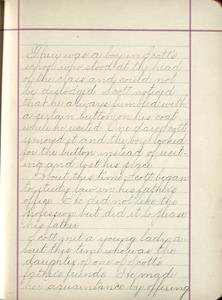 There was a boy in Scott's
school who stood at the head
of the class and could not
be dislodged. Scott noticed
that he always fumbled with
a certain button on his coat
while he recited. One day Scott
removed it and the boy looked
for the button instead of recit-
ing and lost his place.
About this time Scott began
to study law in his father's
office. He did not like the
profession but did it to please
his father.
Scott met a young lady a-
bout this time who was the
daughter of one of Scott's
father's friends. He made
her acquaintance by offering